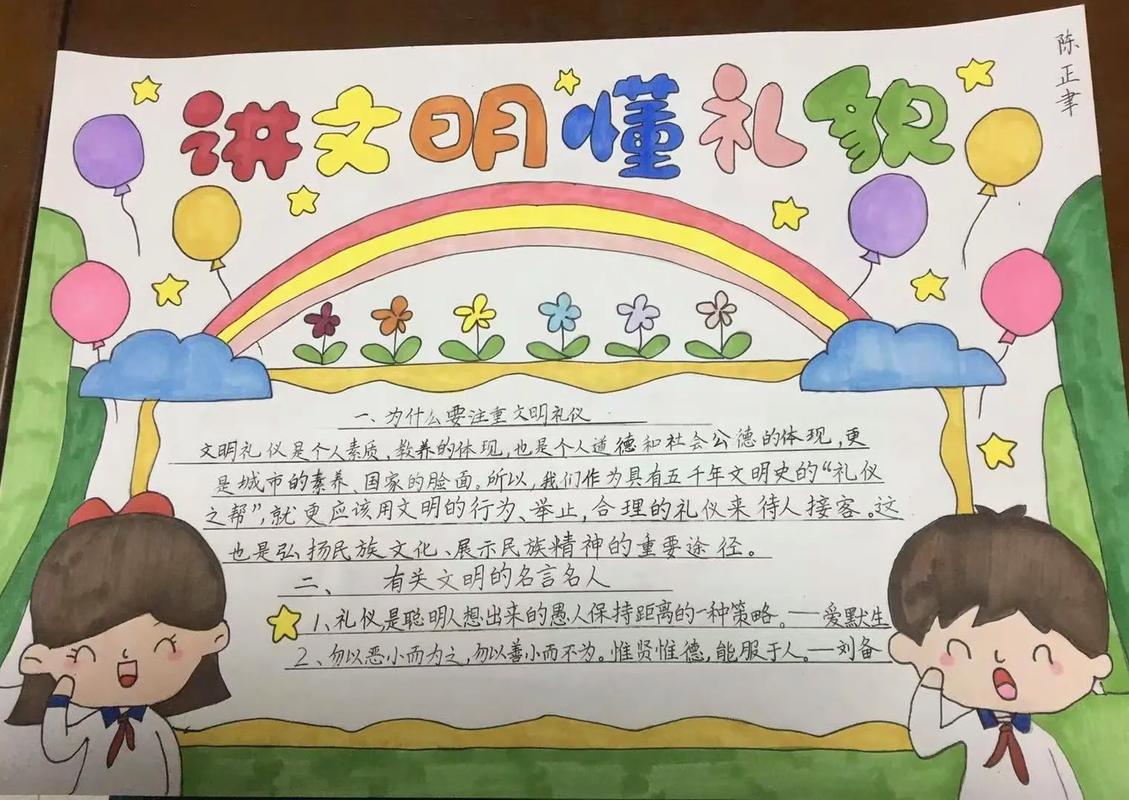 讲文明懂礼貌
陈正聿
一、为什么要注重文明礼仪
文明礼仪是个人素质、教养的体现,也是个人道德和社会公德的体现,更
是城市的素养、国家的脸面。所以,我们作为具有五千年文明史的“礼仪
之帮”,就更应该用文明的行为、举止,合理的礼仪来待人接客。这
也是弘扬民族文化、展示民族精神的重要途径。
二、有关文明的名言名人
1、礼仪是聪明人想出来的愚人保持距离的一种策略。——爱默生
2、勿以恶小而为之,勿以善小而不为。惟贤惟德,能服于人。—刘备